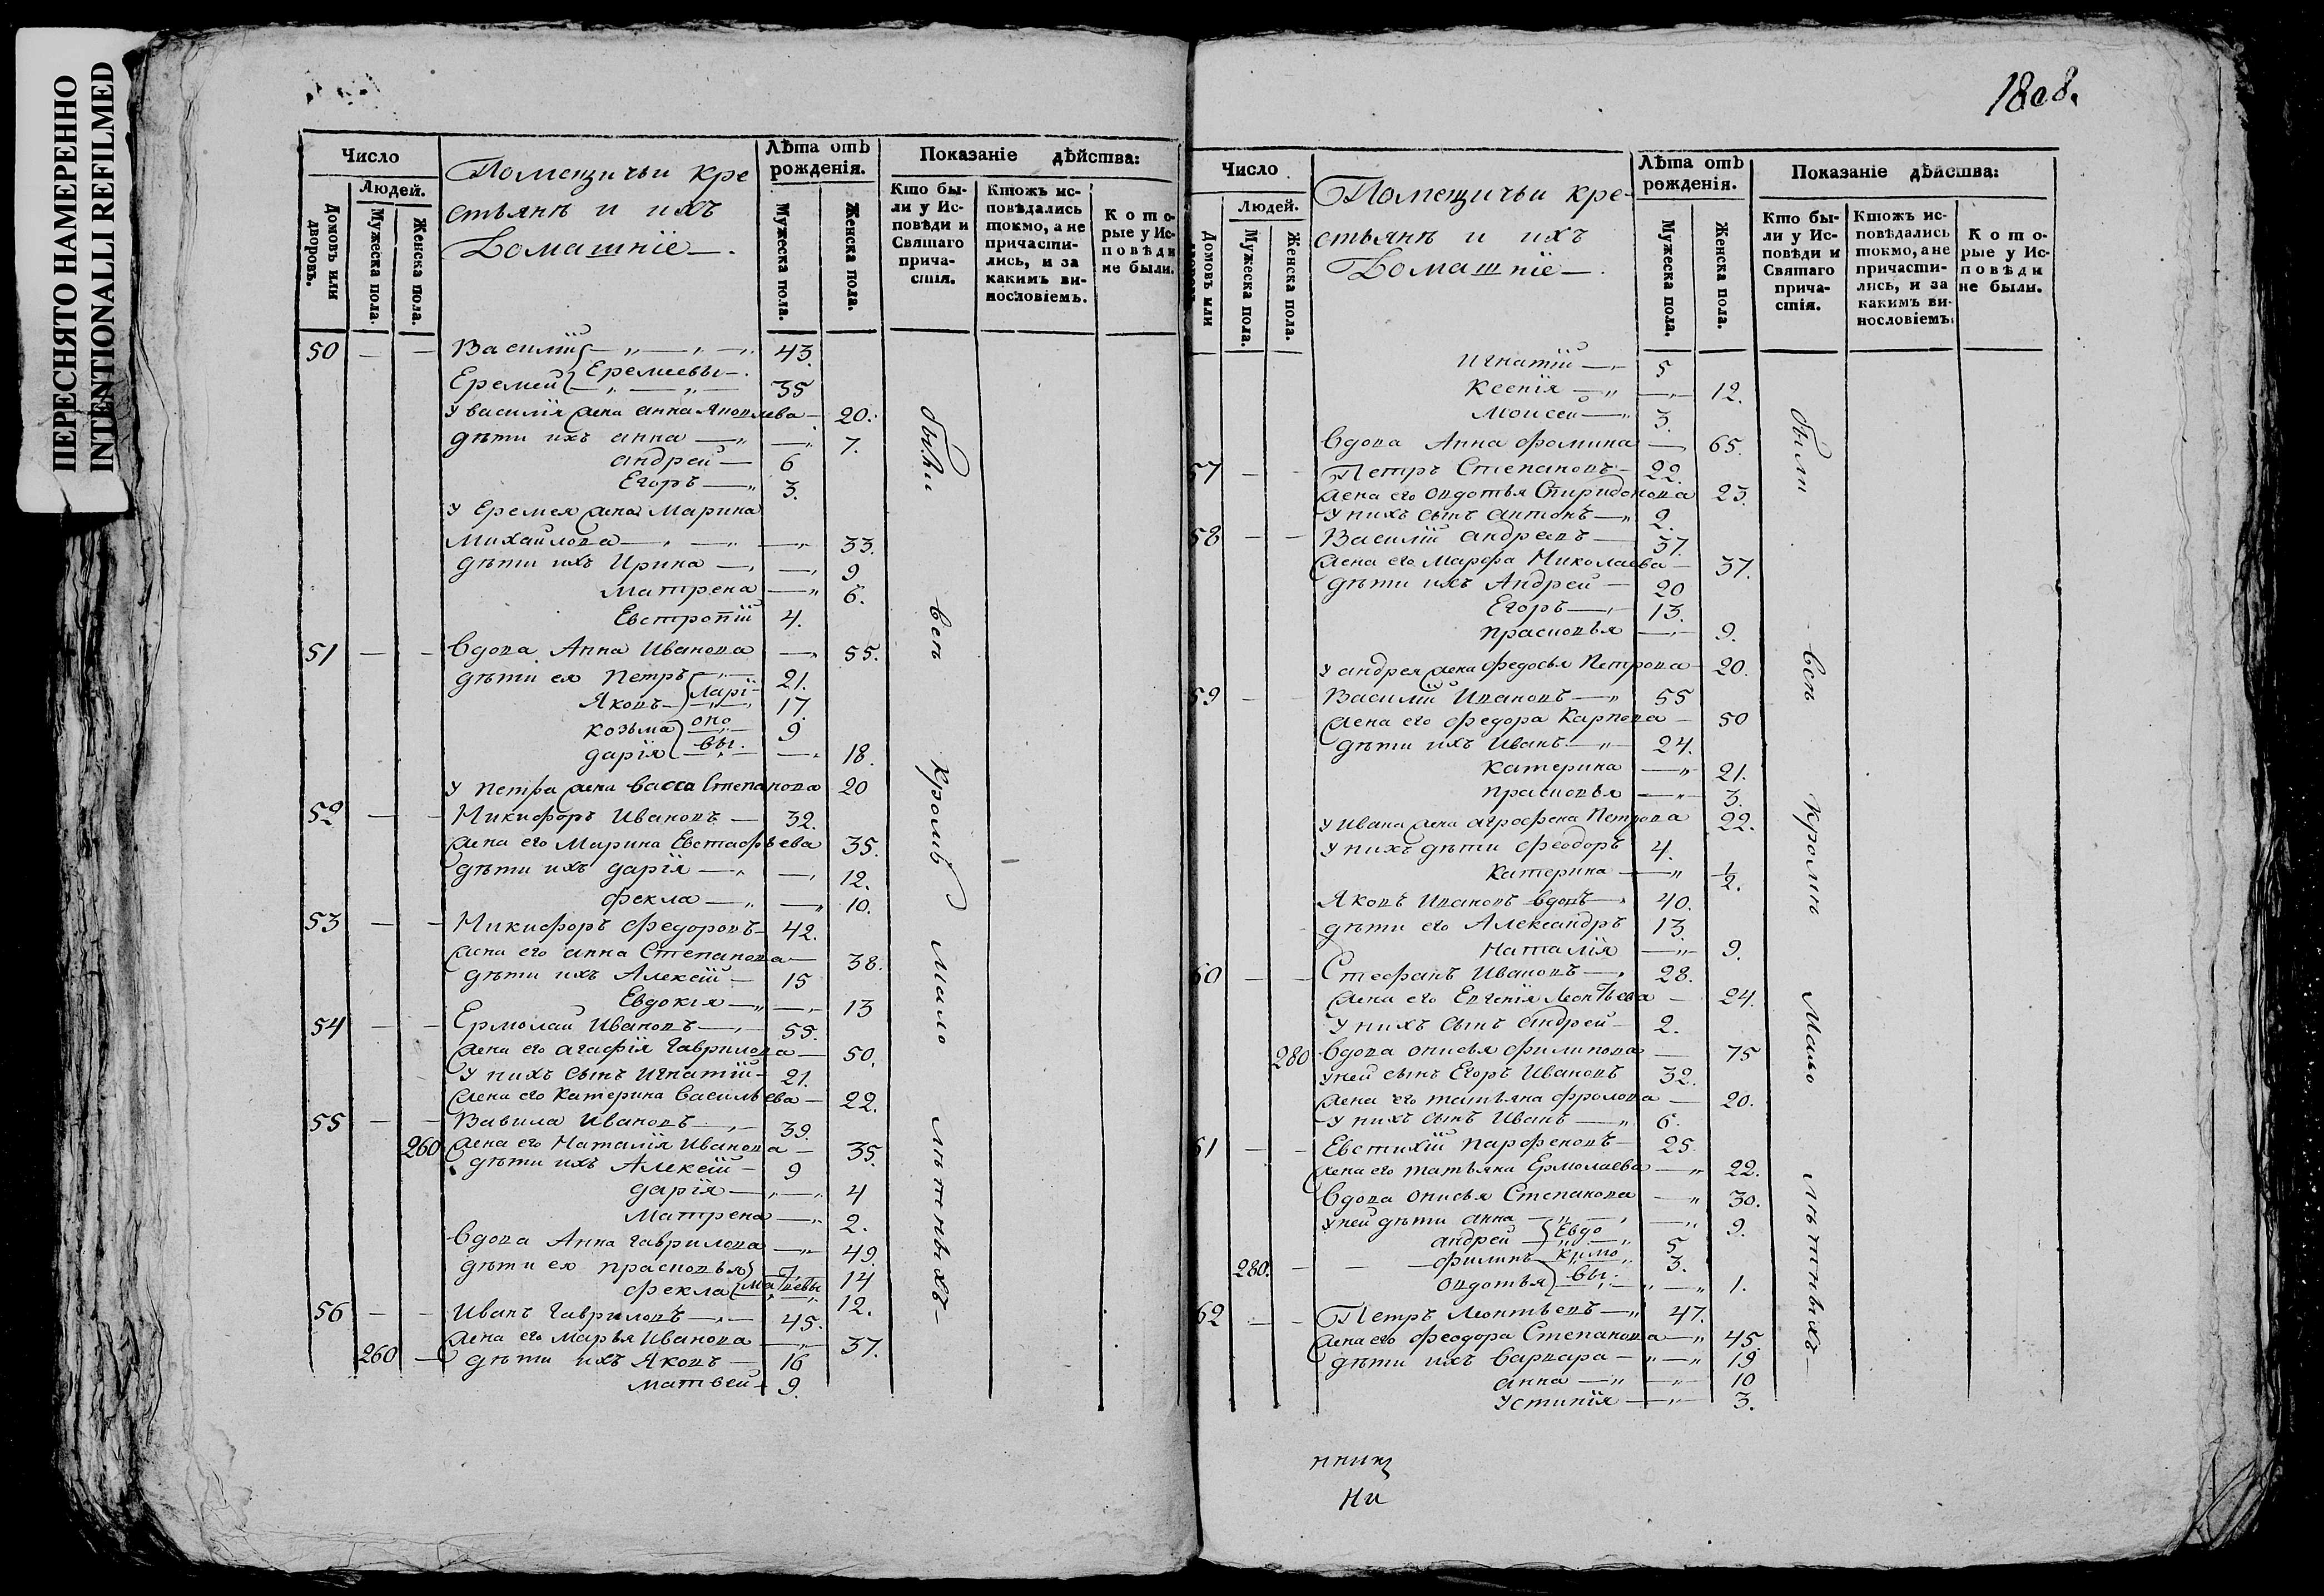 ПЕРЕСНЯТО НАМЕРЕННО
INTENTIONALLI REFILMED
Число
Людей.
Домовъ или дворовъ.
Мужеска пола.
Женска пола.
Помещичьи кре
стьянѣ и ихъ
Домашніе
Лѣта отъ рожденія.
Мужеска пола.
Женска пола.
Показаніе дѣйства:
Кто бы-
ли у Ис-
повѣди и
Святаго
прича-
стія.
Ктожъ ис-
повѣдались
токмо, а не
причасти-
лись, и за
какимъ ви-
нословіемъ.
Кото-
рые у Ис-
повѣди
не были.
50 — — Василій — „ — „ — „ 43.
Еремеевы
Еремей — „ — „ 35
У василія жена анна Яковлева — 20.
дѣти ихъ анна — „ — „ 7.
андрей — 6
Егоръ — „ 3.
У Еремея жена Марина
Михайлова — „ — „ — „ 33.
дѣти ихъ Ирина — „ — „ 9
Матрена — „ 6.
Евстропій 4.
51 — — Вдова Анна Иванова — „ 55.
дѣти ея Петръ — „ 21.
Яковъ ларі- 17.
козьма оно 9
дарія вы. — „ 18.
У петра жена васса Степанова 20
52 — — Никифоръ Ивановъ — 32.
жена его Марина Евстафьева 35.
дѣти ихъ дарія — „ — „ 12.
фекла — „ — „ 10.
53 — — Никифоръ Федоровъ — 42.
жена его анна Степанова — 38.
дѣти ихъ Алексій — 15
Евдокія — „ — „ 13
54 — — Ермолай Ивановъ — „ — 55.
жена его агафія Гаврилова — 50.
У нихъ сынъ Игнатій — 21.
жена его Катерина Васильева — 22.
55 — — Вавила Ивановъ — „ — 39.
260 жена его Наталія Иванова — 35.
дѣти ихъ Алексій — 9
дарія — „ — „ 4
Матрена — „ 2.
Вдова Анна Гаврилова — „ 49.
дѣти ея прасковья 14
фекла Матвевы 12.
56 — — Иванъ Гавриловъ — „ — 45.
жена его Марья Иванова — „ 37.
260 — дѣти ихъ Яковъ — 16
матвей — 9.
были
всѣ
кромѣ
мало
лѣтныхъ —
1808.
Число
Людей.
Домовъ или
Мужеска пола.
Женска пола.
Помещичьи кре-
стьянѣ и ихъ
Домашніе
Лѣта отъ рожденія.
Мужеска пола.
Женска пола.
Показаніе дѣйства:
Кто бы-
ли у Ис-
повѣди и
Святаго
прича-
стія.
Ктожъ ис-
повѣдались
токмо, а не
причасти-
лись, и за
какимъ ви-
нословіемъ.
Кото-
рые у Ис-
повѣди
не были.
Игнатій — „ 5
Ксенія — „ — „ 12.
Моисей — „ 3.
Вдова Анна Фомина — 65.
57 — — Петръ Степановъ — 22.
жена его овдотья Спиридонова 23.
У нихъ сынъ антонъ — „ 2.
58 — — Василій андреевъ — 37.
жена его Марфа Николаева — 37.
дѣти ихъ Андрей — 20
Егоръ — „ 13.
прасковья — „ 9.
У андрея жена федосья Петрова 20.
59 — — Василій Ивановъ — „ 55
жена его федора Карпова — 50
дѣти ихъ Иванъ — „ 24.
Катерина — „ 21.
прасковья — „ 3.
У Ивана жена аграфена Петрова 22.
У нихъ дѣти феодоръ 4.
Катерина — „ 1/2.
Яковъ Ивановъ вдовъ — „ 40.
дѣти его Александръ 13
Наталія — „ 9.
60 — — Стефанъ Ивановъ — „ 28.
жена его Евгенія Леонтьева — 24.
У нихъ сынъ андрей — 2.
280 Вдова онисья филипова — 75
У ней сынъ Егоръ Ивановъ 32.
жена его татьяна фролова — 20.
У нихъ сынъ Иванъ — „ 6.
61 — — Евстихій парфеновъ — 25.
жена его татьяна Ермолаева — „ 22.
Вдова онисья Степанова — „ 30.
У ней дѣти анна — „ — „ 9.
андрей Евдо 5
280. — — филипъ кимо 3.
овдотья вы. — „ 1.
62 — — Петръ Леонтьевъ — „ 47.
жена его феодора Степанова — „ 45.
дѣти ихъ варвара — „ — „ 19
анна — „ — „ 10
Устинія — „ 3.
были
всѣ
кромѣ
мало
лѣтныхъ —
ни